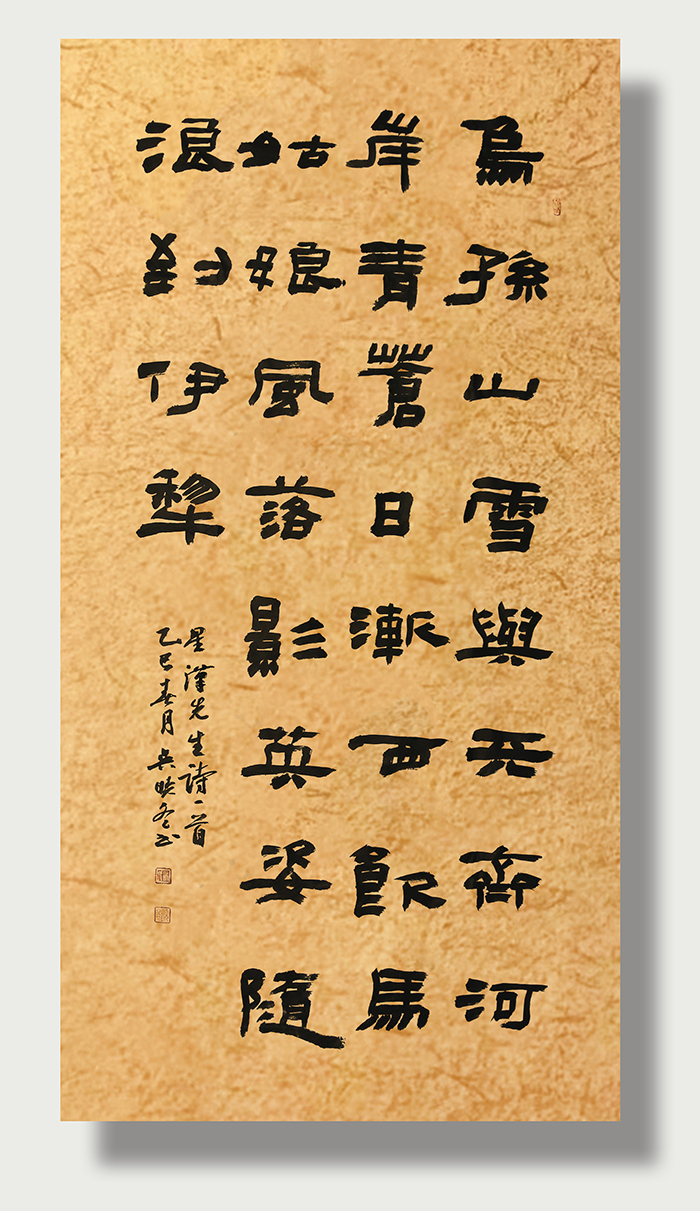 烏孫山雪與天齊河
岸青蒼日漸西飲馬
姑娘風落影英姿隨
浪到伊犁
星漢先生詩一首
乙巳春月